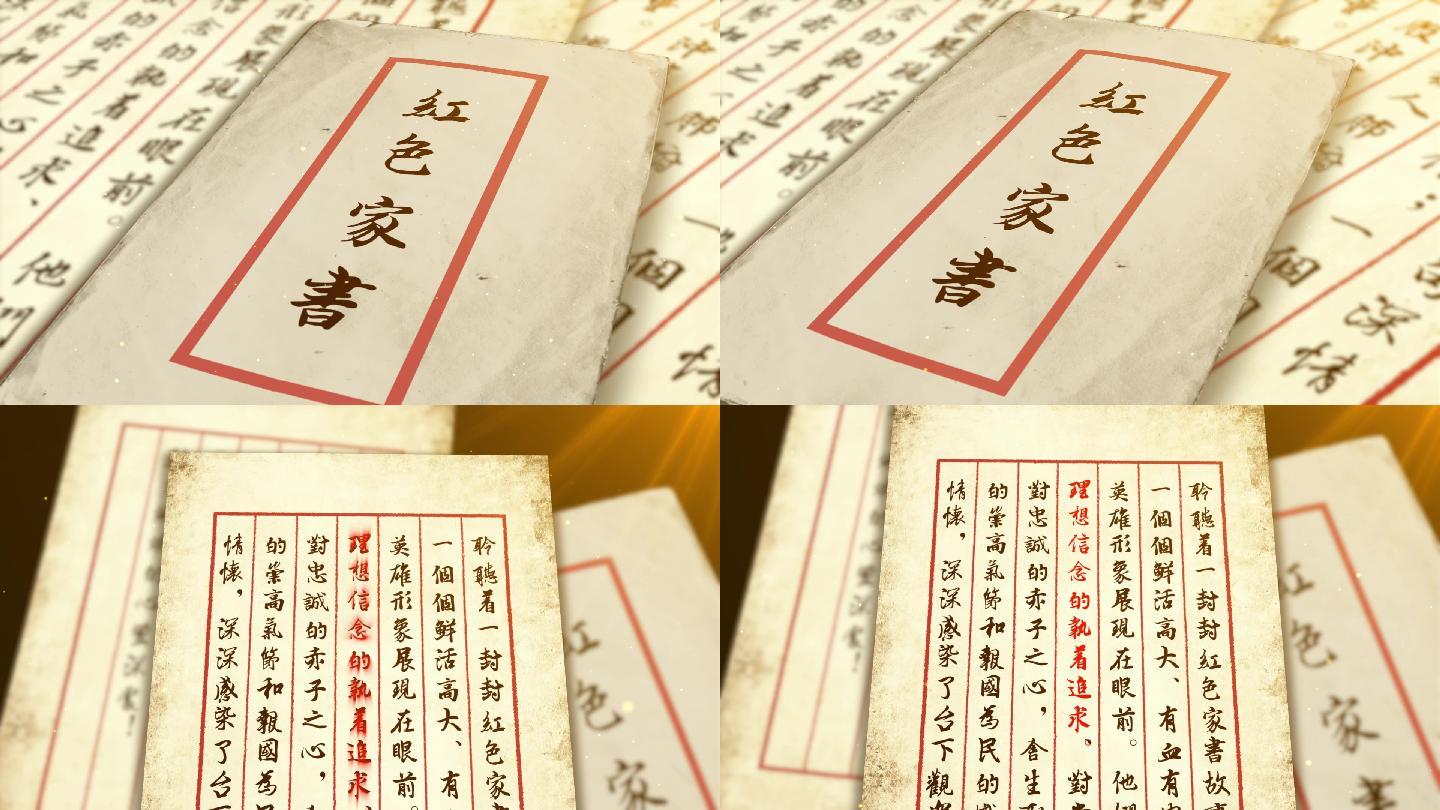 紅色家書
展現在眼前。
念的執着追求、
赤子之心
他們
一個
情
紅色家書
在眼前。
一個
深情
聆聽着一封封紅色家
一個個鮮活高大、有
英雄形象展現在眼前。
理想信念的執着追求
對忠誠的赤子之心，
的崇高氣節和報國為
情懷，深深感染了台
紅色家
聆聽着一封封紅色家書故
一個個鮮活高大、有血有
英雄形象展現在眼前。他們
理想信念的執着追求。對
對忠誠的赤子之心，舍生
的崇高氣節和報國為民的
情懷，深深感染了台下觀
紅色家書